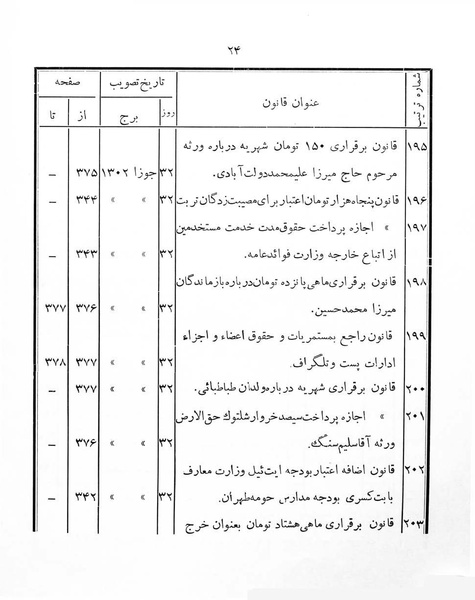 ۲۴
شماره ترتیب
عنوان قانون
تاریخ تصویب
صفحه
روز
برج
از
تا
۱۹۵ قانون برقراری ۱۵۰ تومان شهریه درباره ورثه
مرحوم حاج میرزا علیمحمددولت‌آبادی. ۳۲ جوزا ۱۳۰۲ ۳۷۵ –
۱۹۶ قانون‌پنجاه‌هزارتومان‌اعتباربرای‌مصیبت‌زدگان‌تربت ۳۲ » » ۳۴۴ –
۱۹۷ » اجازه پرداخت حقوق‌مدت خدمت مستخدمین
از اتباع خارجه وزارت فوائدعامه. ۳۲ » » ۳۴۳ –
۱۹۸ قانون برقراری‌ماهی‌پانزده تومان‌درباره‌بازماندگان
میرزا محمدحسین. ۳۲ » » ۳۷۶ ۳۷۷
۱۹۹ قانون راجع بمستمریات و حقوق اعضاء و اجزاء
ادارات پست و تلگراف. ۳۲ » » ۳۷۷ ۳۷۸
۲۰۰ قانون برقراری شهریه درباره‌ولدان طباطبائی. ۳۲ » » ۳۷۷ –
۲۰۱ » اجازه پرداخت‌سیصدخروارشلتوك حق‌الارض
ورثه آقاسلیم‌سنگ. ۳۲ » » ۳۷۶ –
۲۰۲ قانون اضافه اعتباربودجه ایت‌ئیل وزارت معارف
بابت‌کسری بودجه مدارس حومه‌طهران. ۳۲ » » ۳۴۲ –
۲۰۳ قانون برقراری ماهی‌هشتاد تومان بعنوان خرج